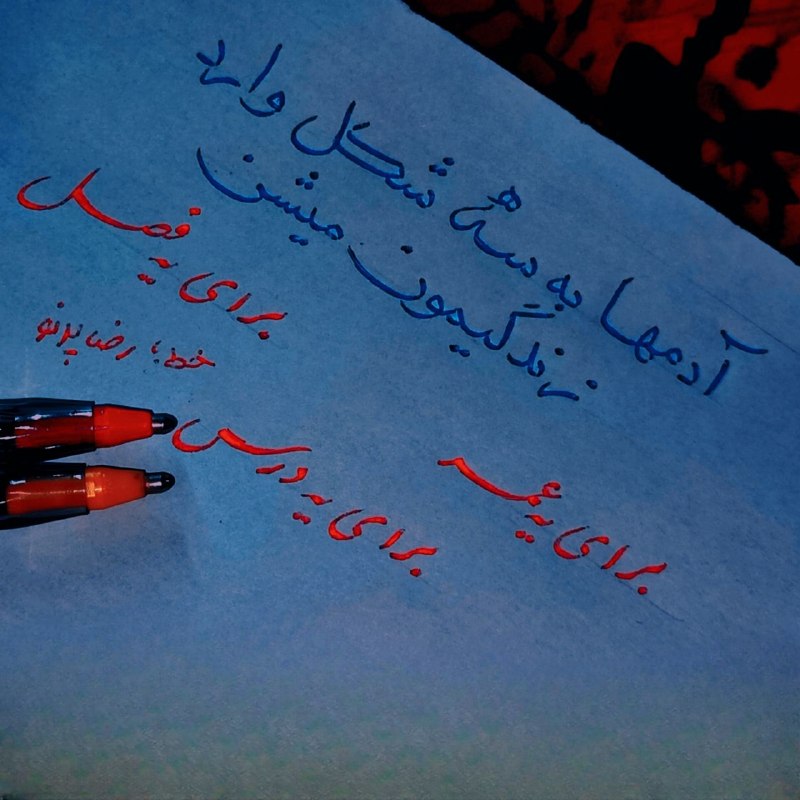 آدمها به سه شکل وارد
زندگیمون میشن
برای یه فصل
برای یه درس
برای یه عمر
خط؛ رضا